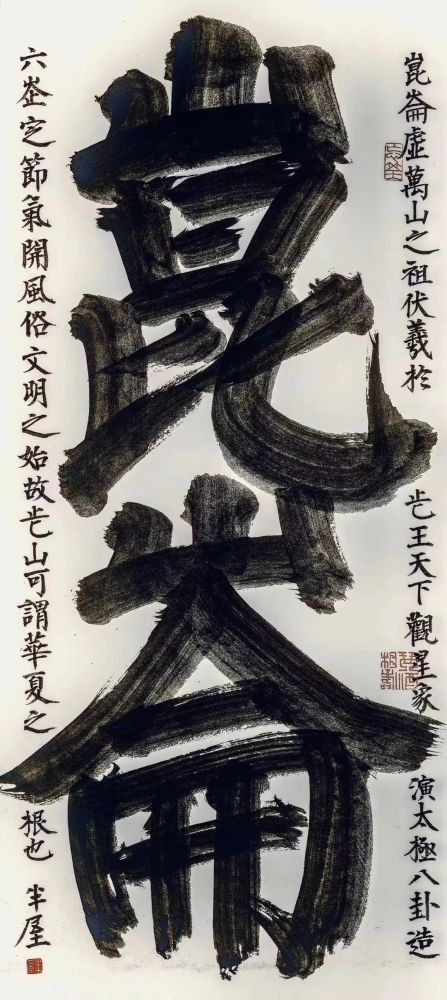 崑崙
崑崙虛萬山之祖伏羲於此王天下觀星象演太極八卦造
六峜定節氣開風俗文明之始故此山可謂華夏之根也 半屋